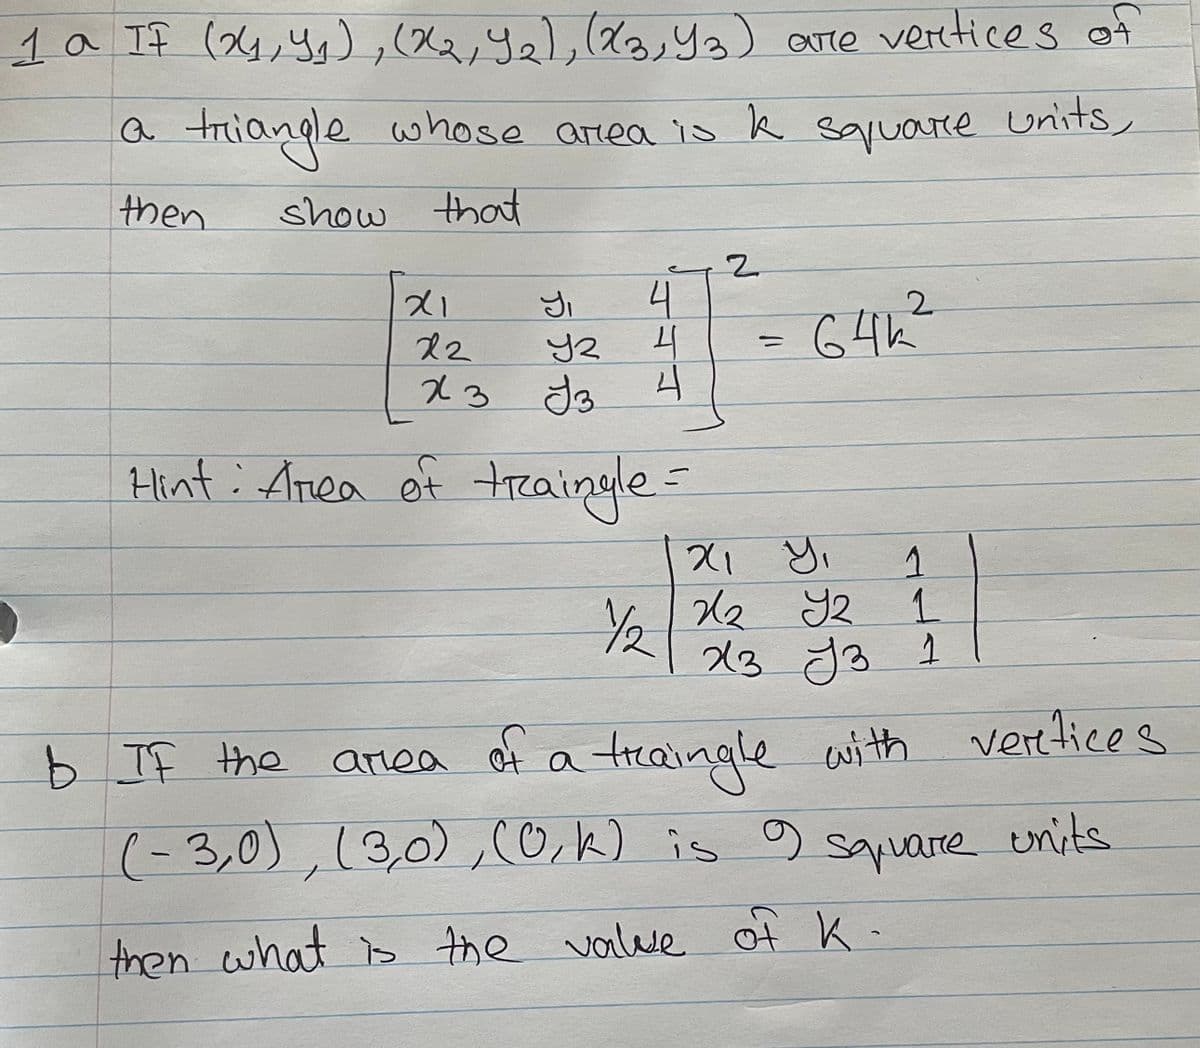 1 a If (x1,y1),(x2,y2),(x3,y3) are vertices of
a triangle whose area is k square units,
then show that
[x1 y1 4
x2 y2 4
x3 y3 4]² = 64k²
Hint : Area of traingle =
1/2 | x1 y1 1
x2 y2 1
x3 y3 1 |
b If the area of a traingle with vertices
(-3,0), (3,0), (0,k) is 9 square units
then what is the value of k.